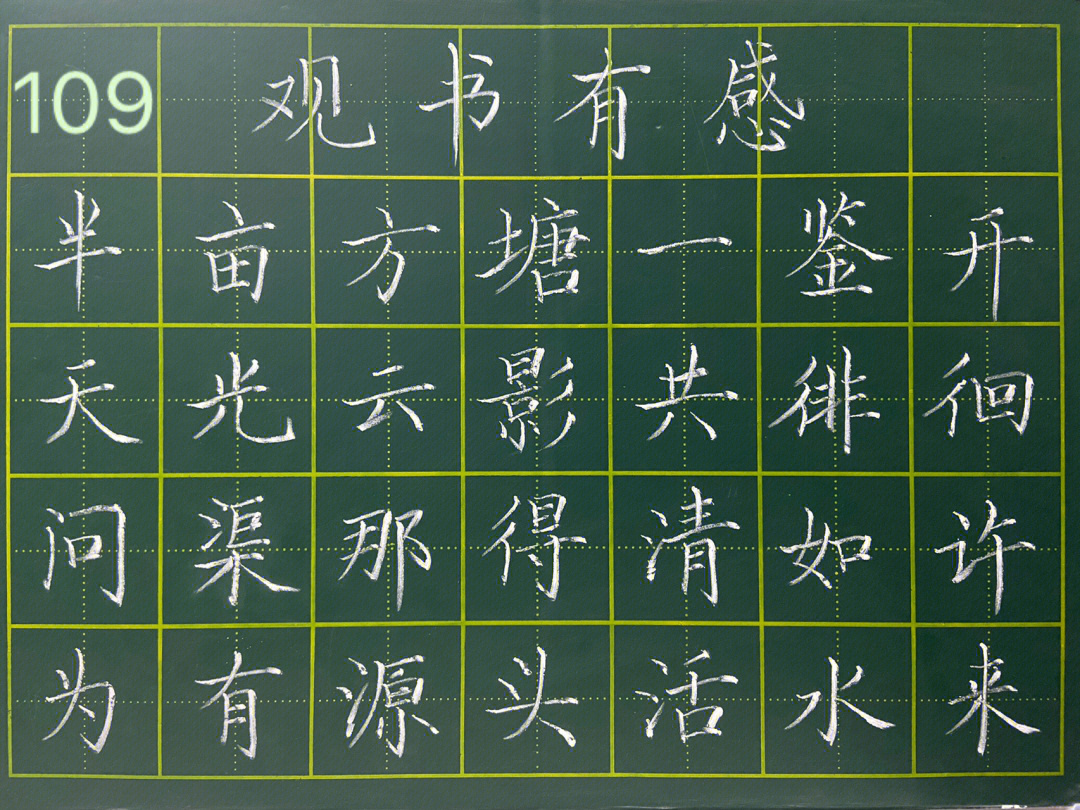 109
观书有感
半亩方塘一鉴开
天光云影共徘徊
问渠那得清如许
为有源头活水来